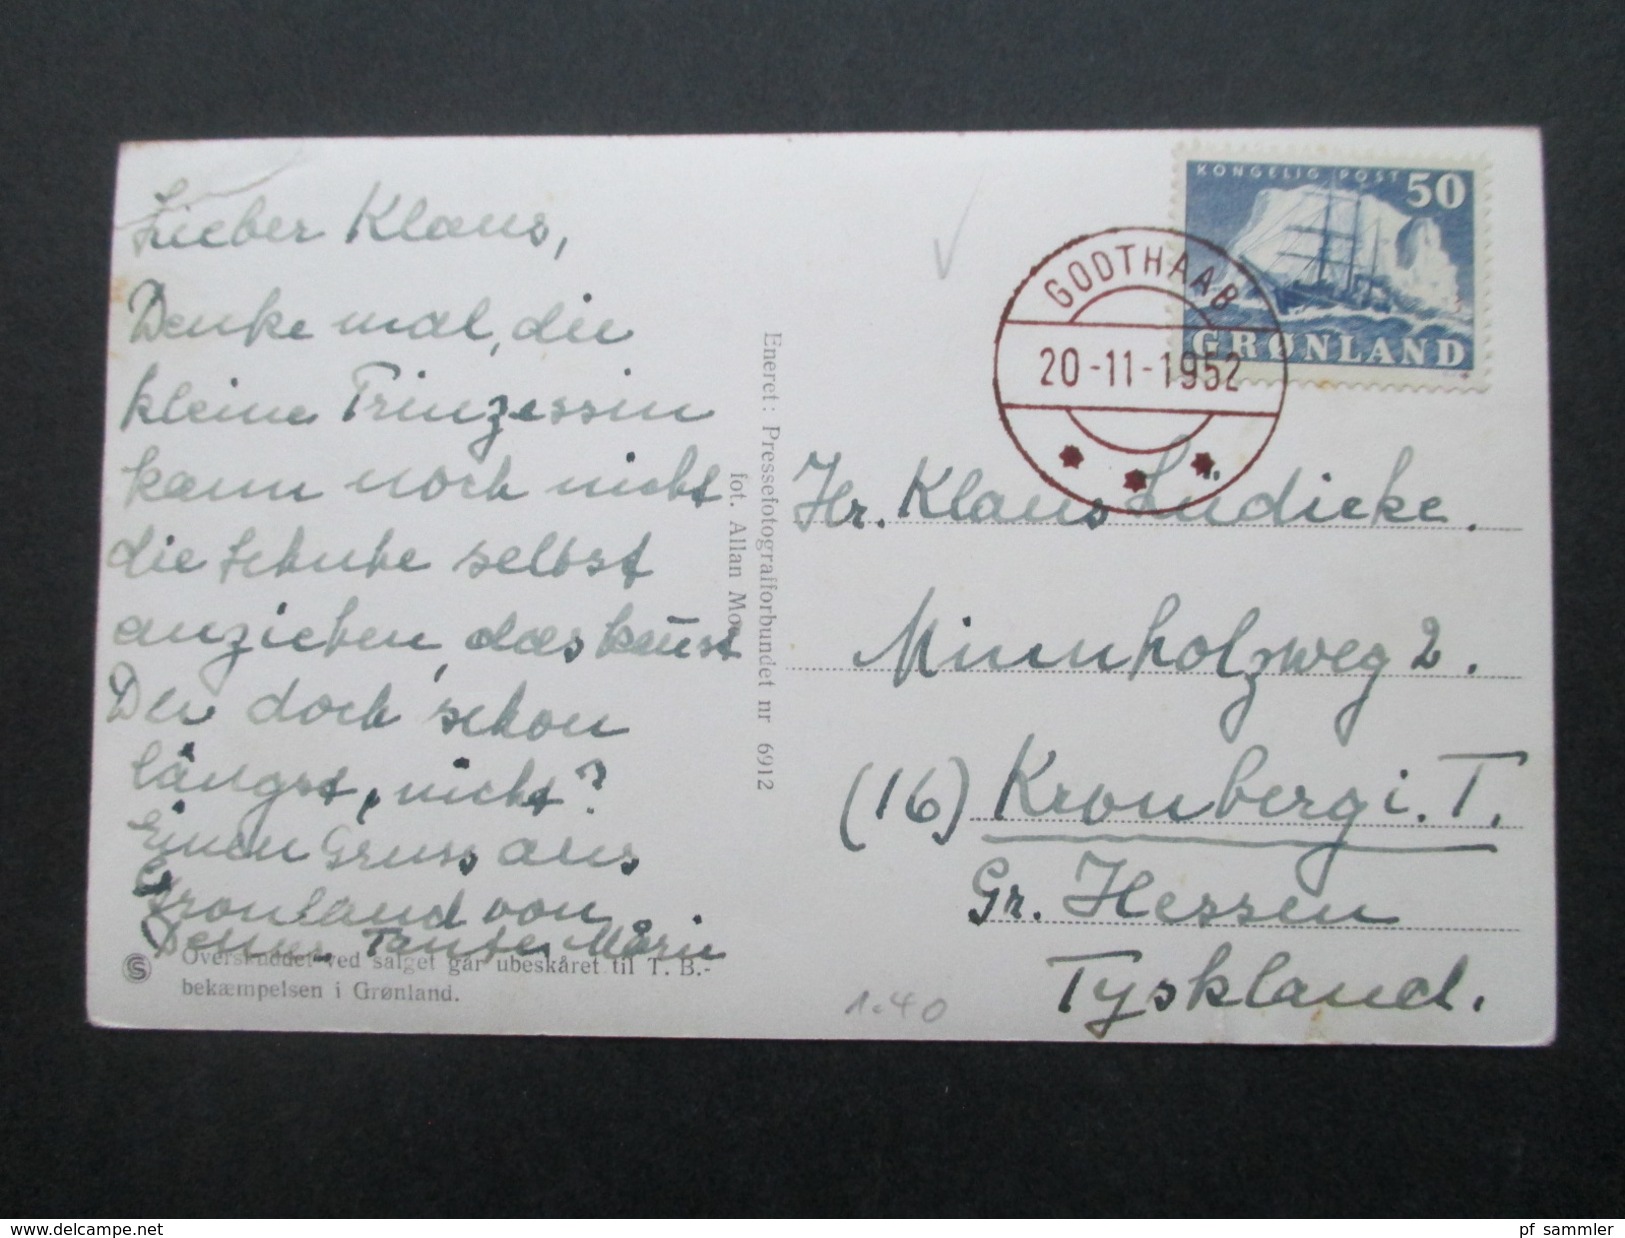 Lieber Klaus,
Denke mal, die
kleine Prinzessin
kann noch nicht
die Schuhe selbst
anziehen, das kannst
Du doch schon
längst, nicht?
Einen Gruss aus
Grönland von
Deiner Tante Marie
Overskuddet ved salget går ubeskåret til T. B.-
bekæmpelsen i Grønland.
Eneret: Pressefotografforbundet nr 6912
fot. Allan Moe
KONGELIG POST 50
GRØNLAND
GODTHAAB
20-11-1952
Hr. Klaus Ludicke.
Minnholzweg 2.
(16) Kronberg i. T.
Gr. Hessen
Tyskland.
1.40
delcampe.net
pf_sammler